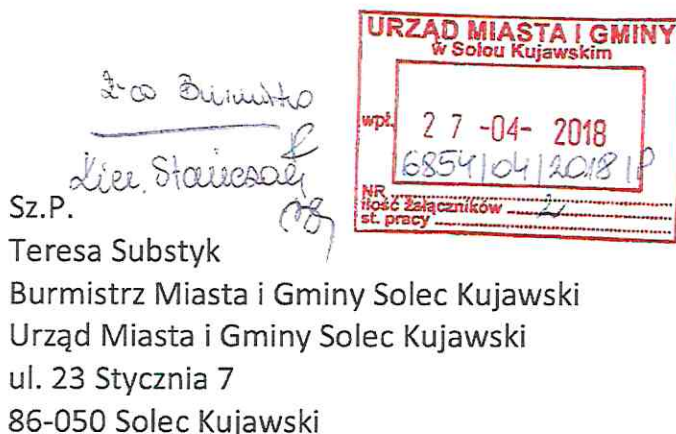 URZĄD MIASTA I GMINY
w Solcu Kujawskim
wpł. 27 -04- 2018
6854/04/2018/P
NR
ilość załączników 2
st. pracy
Z-ca Burmistrza
Kier. Stańczak
Sz.P.
Teresa Substyk
Burmistrz Miasta i Gminy Solec Kujawski
Urząd Miasta i Gminy Solec Kujawski
ul. 23 Stycznia 7
86-050 Solec Kujawski